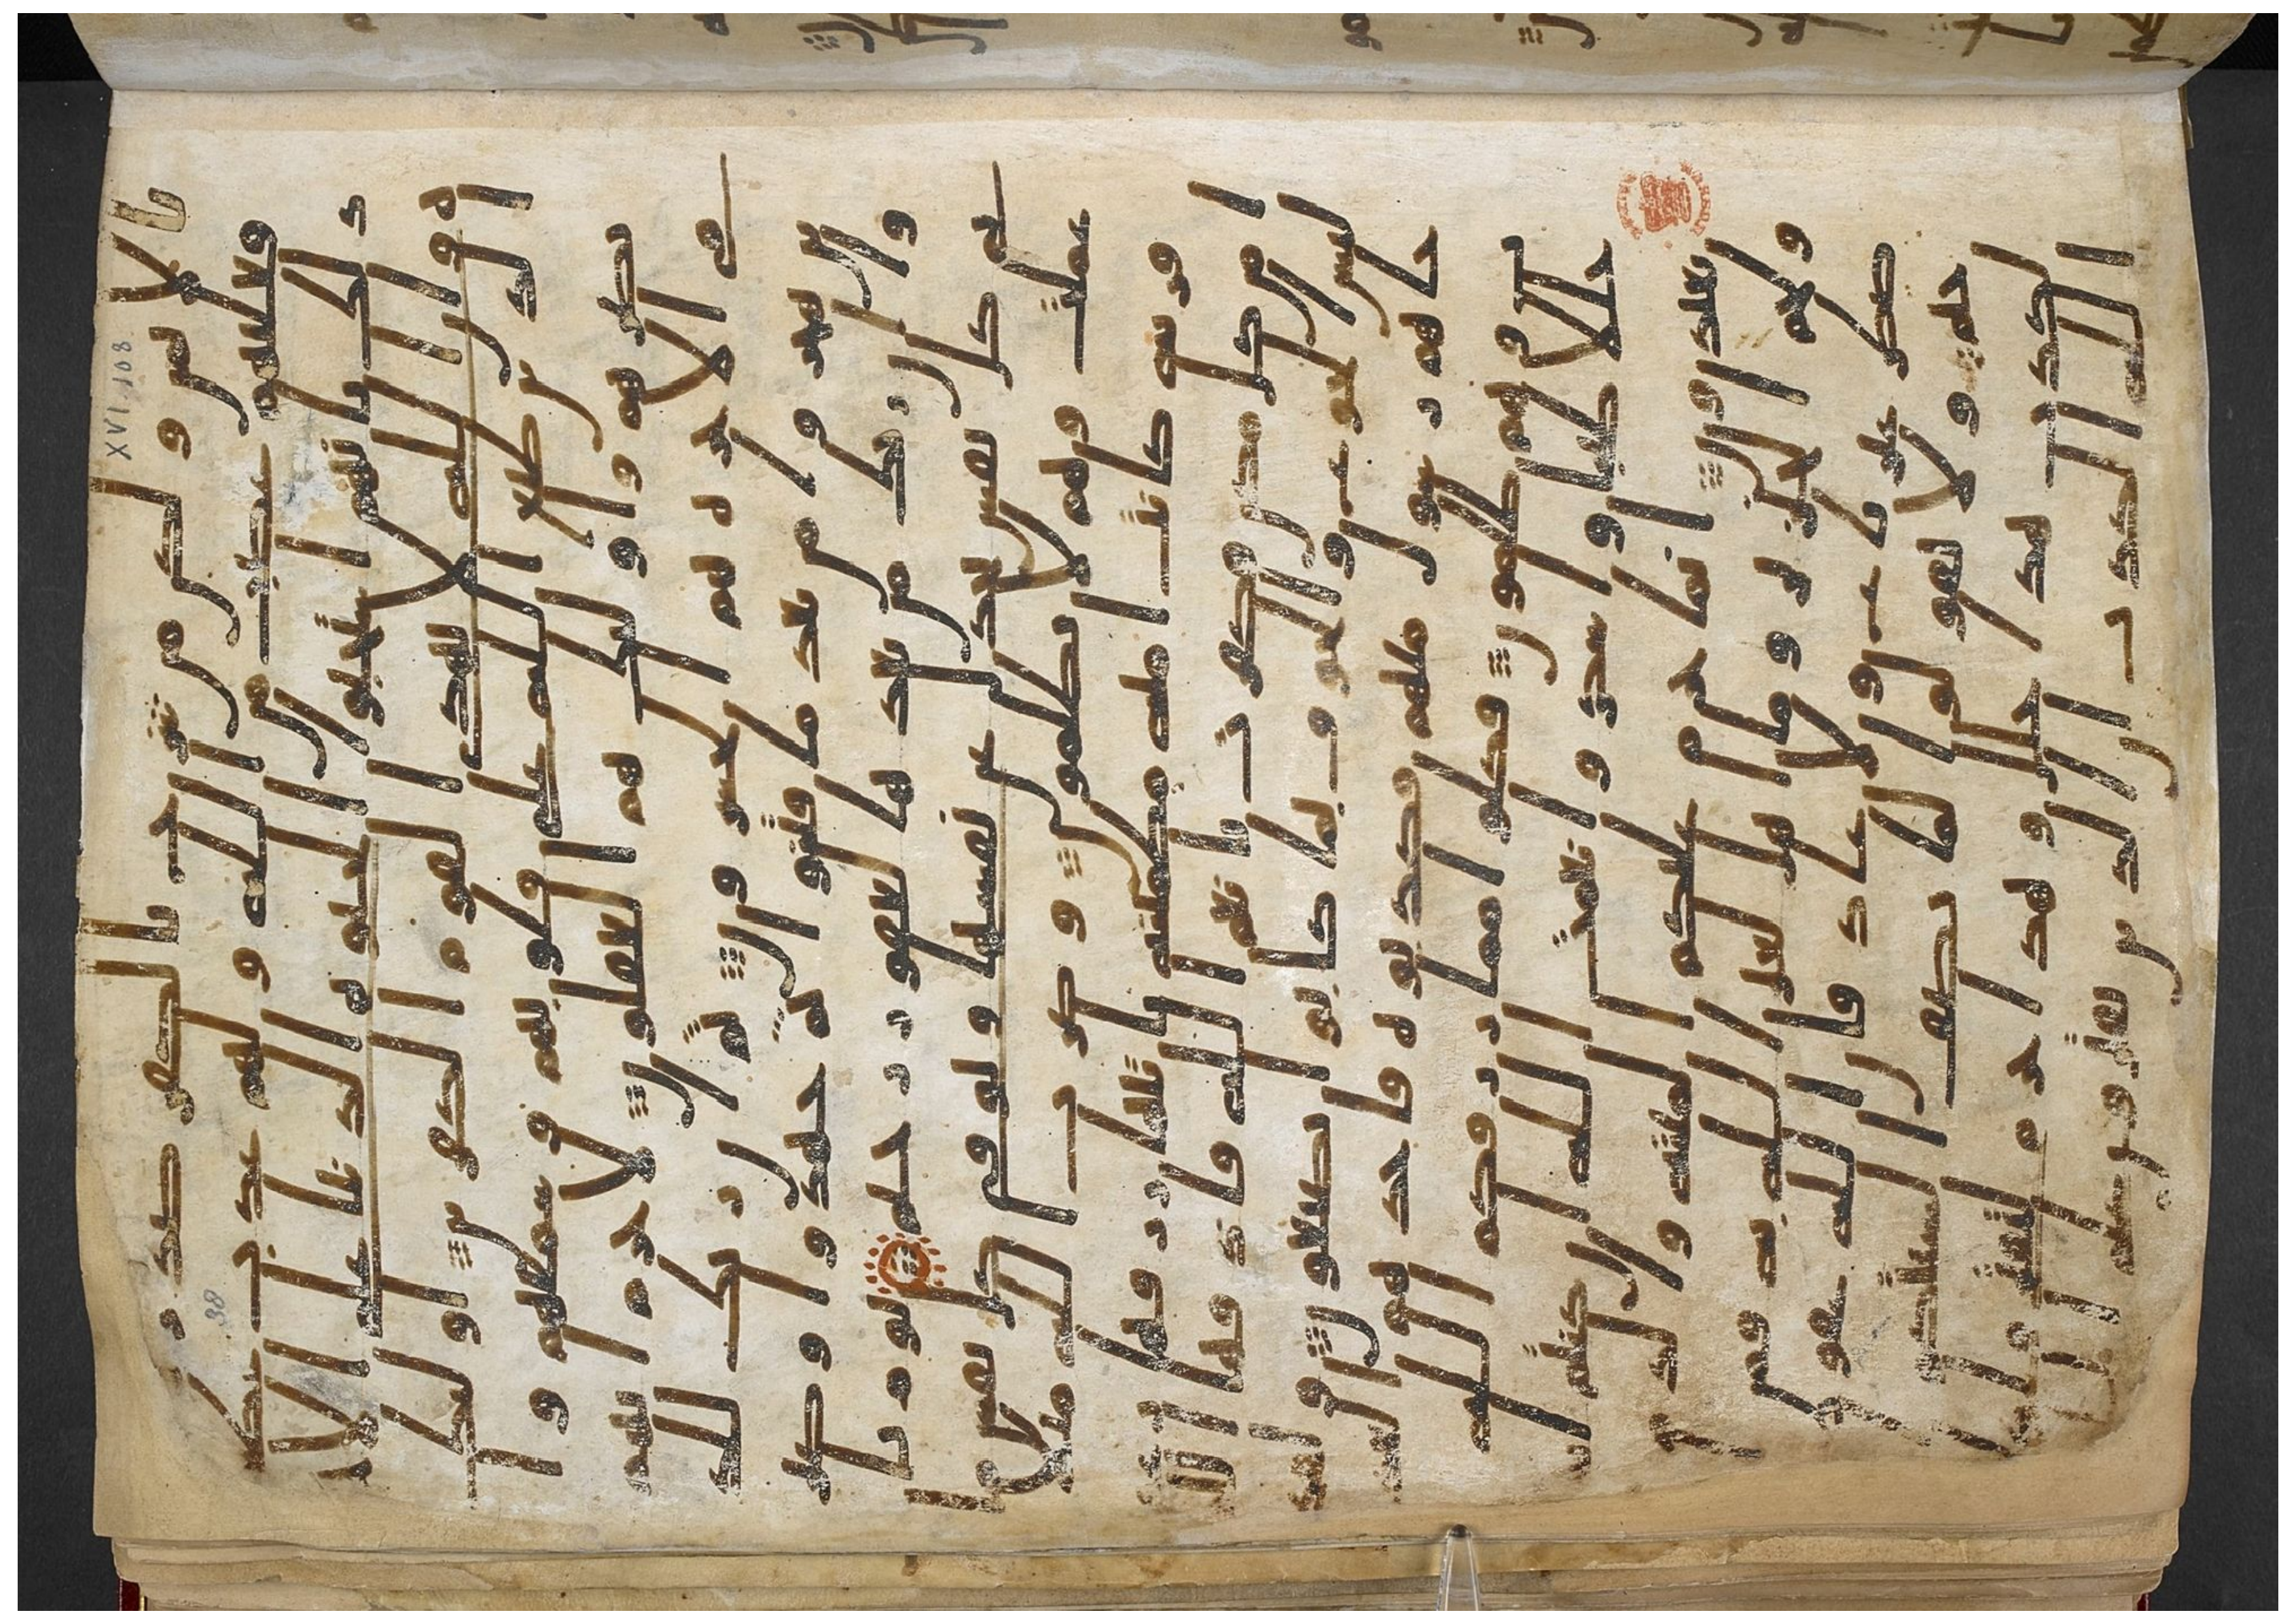 XVI.108
38
بالايمن ولكن من شرح بالكفر صدرا
فعليهم غضب من الله ولهم عذاب عظيم
ذلك بانهم استحبوا الحيوة الدنيا على الا
خرة وان الله لا يهدي القوم الكفرين اولئك
الذين طبع الله على قلوبهم وسمعهم وا
بصرهم واولئك هم الغفلون لا جرم انهم
في الاخرة هم الخسرون ثم ان ربك للذ
ين هجروا من بعد ما فتنوا ثم جهدوا وصبر
وا ان ربك من بعدها لغفور رحيم يوم تا
تي كل نفس تجدل عن نفسها وتوفى كل نفس ما
عملت وهم لا يظلمون وضرب الله مثلا
قرية كانت امنة مطمئنة ياتيها رزقها ر
غدا من كل مكان فكفرت بانعم الله فاذقها ا
لله لباس الجوع والخوف بما كانوا يصنعون ولقد
جاهم رسول منهم فكذبوه فاخذهم العذاب
وهم ظلمون فكلوا مما رزقكم الله
حللا طيبا واشكروا نعمت الله ان كنتم ا
ياه تعبدون انما حرم عليكم الميتة والدم
ولحم الخنزير وما اهل لغير الله به فمن ا
ضطر غير باغ ولا عاد فان الله غفور
رحيم ولا تقولوا لما تصف السنتكم ا
لكذب هذا حلل وهذا حرام لتفتروا على
الله الكذب ان الذين يفترون على ا